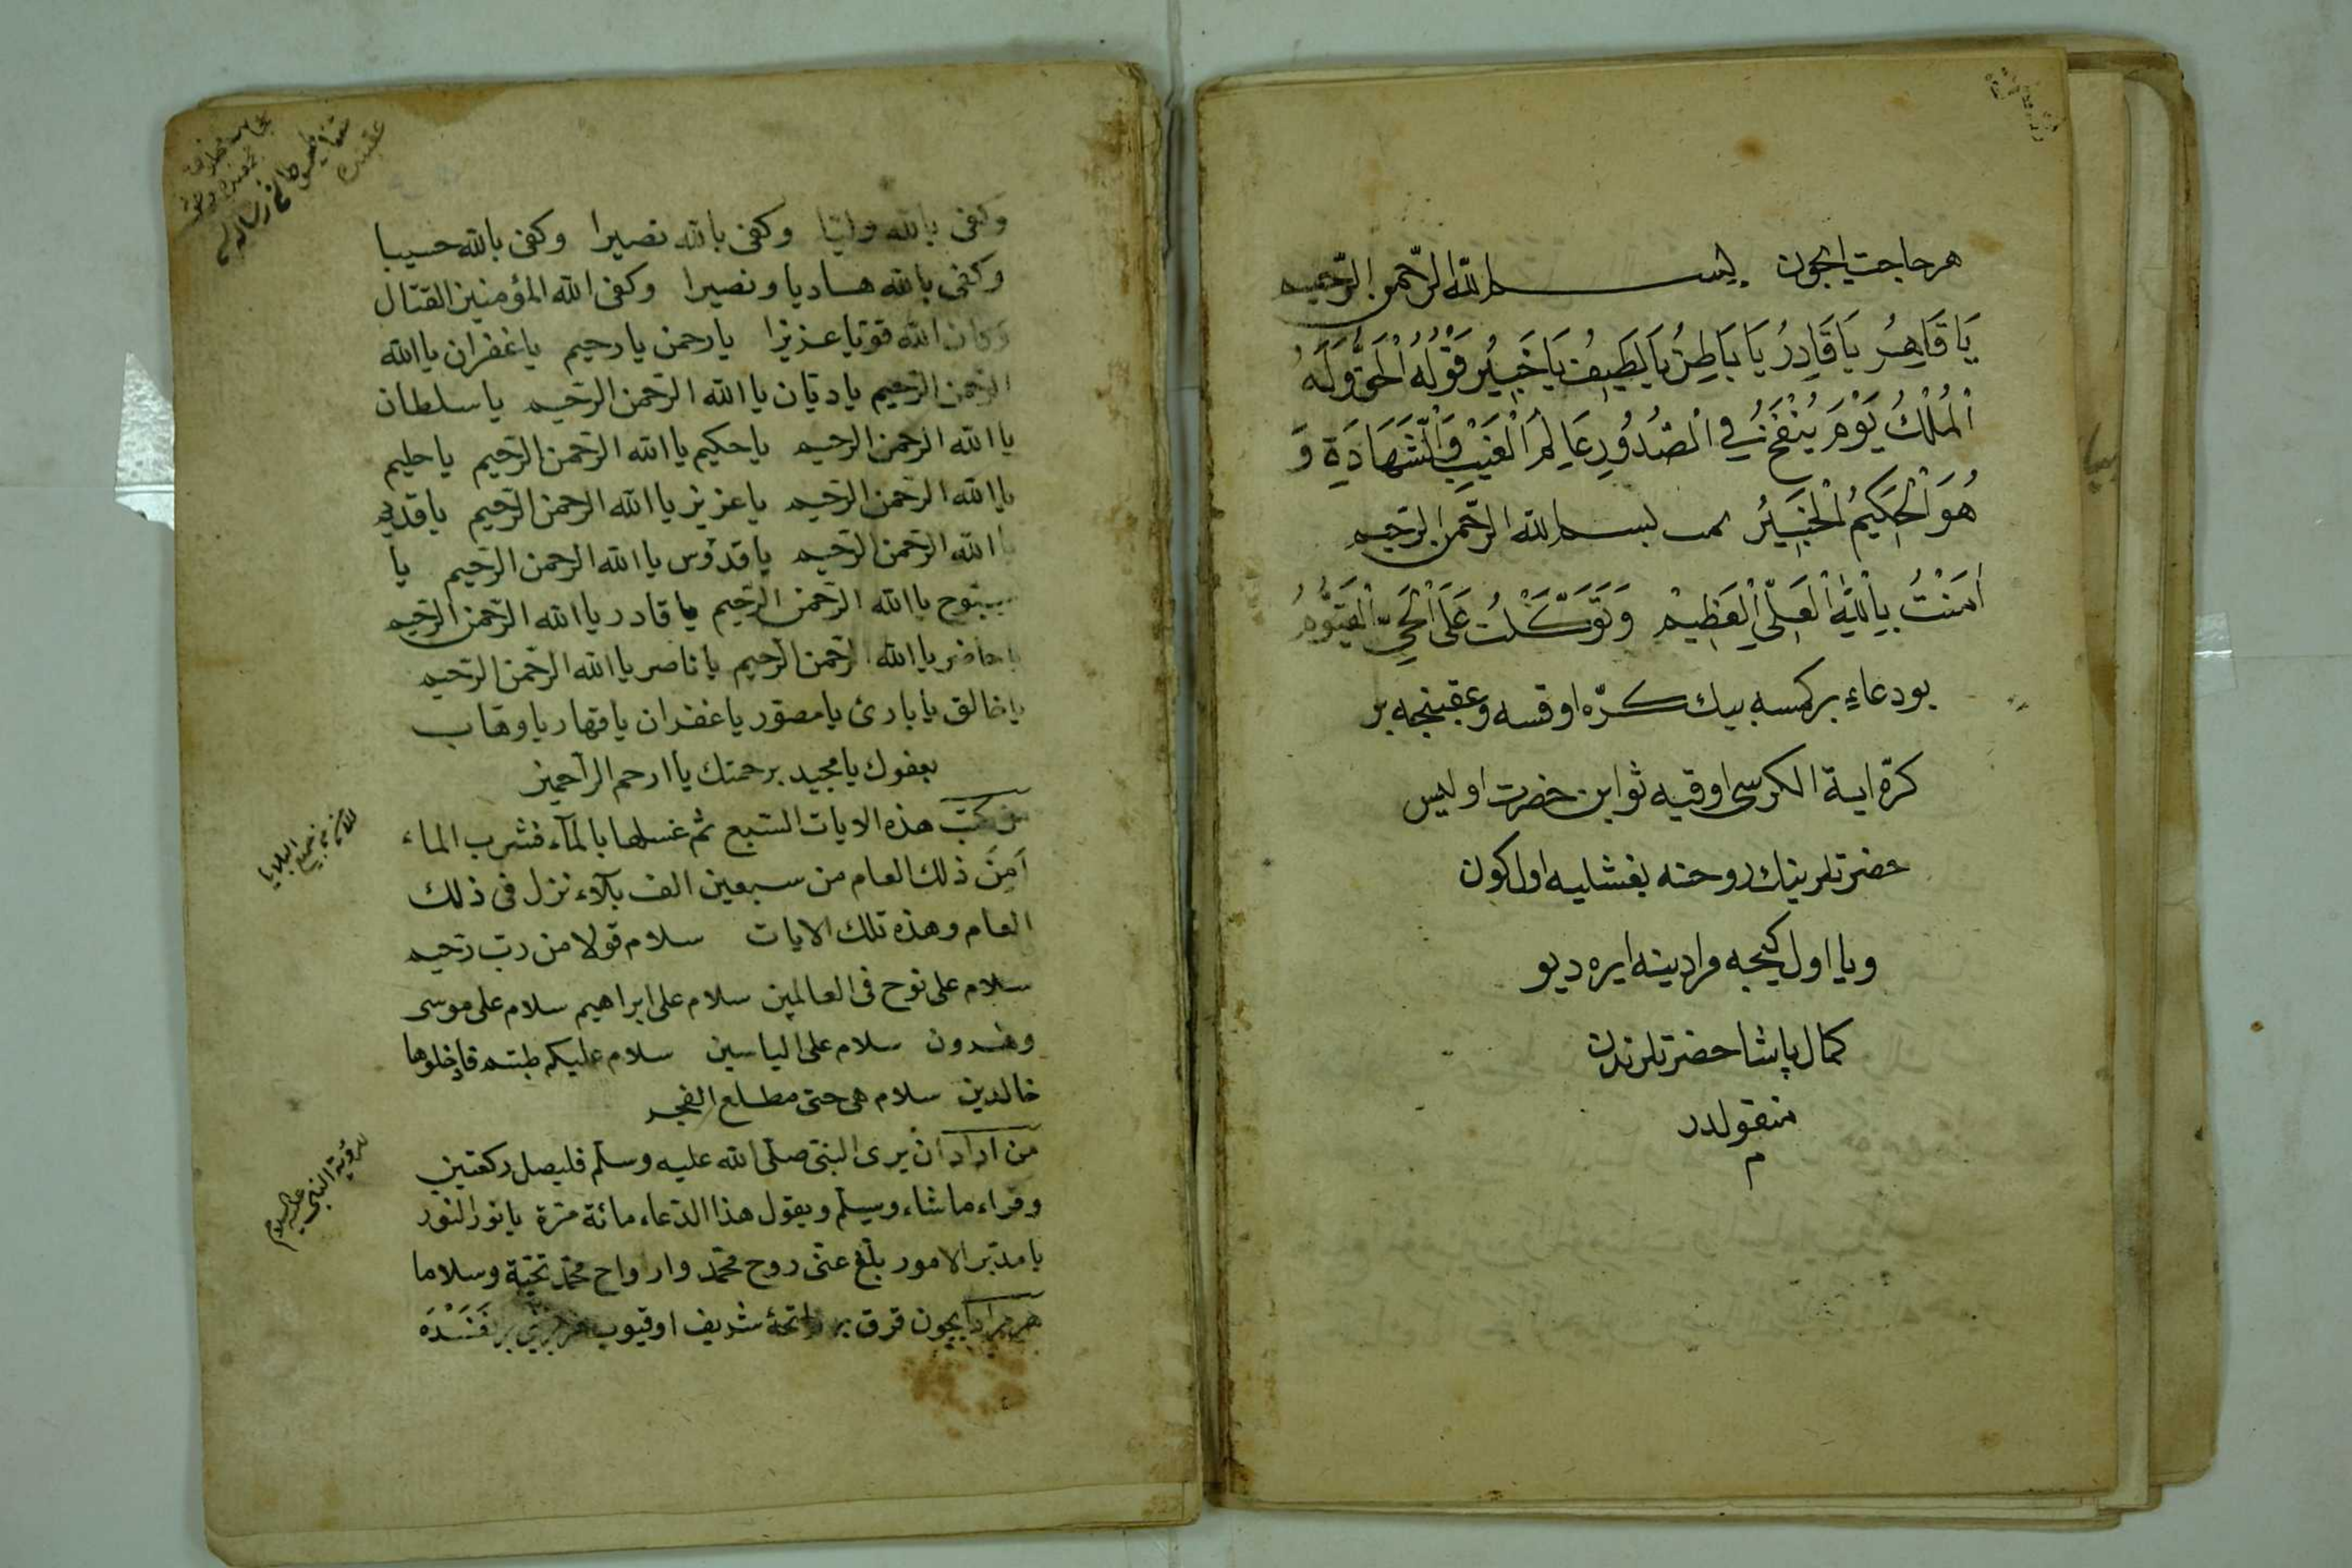 هر حاجت ایچون بسم الله الرّحمن الرّحیم
يَا قَاهِرُ يَا قَادِرُ يَا بَاطِنُ يَا لَطِيفُ يَا خَبِيْر قَوْلُهُ الْحَقُّ وَلَهُ
الْمُلْكُ يَوْمَ يُنْفَخُ فِي الصُّدُورِ عَالِمُ الْغَيْبِ وَالشَّهَادَةِ وَ
هُوَ الْحَكِيمُ الْخَبِيْرُ بسم الله الرّحمن الرّحیم
اٰمَنْتُ بِاللّٰهِ الْعَلِيِّ الْعَظِيمِ وَتَوَكَّلْتُ عَلَى الْحَيِّ الْقَيُّومُ
بو دعاء بر كمسه بيك كرّه اوقسه و عقبنجه بر
كرّه اية الكرسى اوقيه ثوابن حضرت اوليس
حضرتلرينك روحنه بغشليه اول كون
ويا اول كيجه مرادينه ايره ديو
كمال پاشا حضرتلرندن
منقولدر
م
وكفى بالله وليّا وكفى بالله نصيرا وكفى بالله حسيبا
وكفى بالله هاديا ونصيرا وكفى الله المؤمنين القتال
وكان الله قويّا عزيزا يا رحمن يا رحيم يا غفران يا الله
الرّحمن الرّحيم يا ديّان يا الله الرّحمن الرّحيم يا سلطان
يا الله الرّحمن الرّحيم يا حكيم يا الله الرّحمن الرّحيم يا حليم
يا الله الرّحمن الرّحيم يا عزيز يا الله الرّحمن الرّحيم يا قديم
يا الله الرّحمن الرّحيم يا قدّوس يا الله الرّحمن الرّحيم يا
سبّوح يا الله الرّحمن الرّحيم يا قادر يا الله الرّحمن الرّحيم
يا حاضر يا الله الرّحمن الرّحيم يا ناصر يا الله الرّحمن الرّحيم
يا خالق يا بارئ يا مصوّر يا غفران يا قهار يا وهاب
بعفوك يا مجيد برحمتك يا ارحم الرّاحمين
من كتب هذه الايات السّبع ثم غسلها بالمآء فشرب الماء
اَمِنَ ذلك العام من سبعين الف بلآء نزل فى ذلك
العام وهذه تلك الايات سلام قولا من ربّ رحيم
سلام على نوح فى العالمين سلام على ابراهيم سلام على موسى
وهرون سلام على الياسين سلام عليكم طبتم فادخلوها
خالدين سلام هى حتى مطلع الفجر
من اراد ان يرى النبىّ صلّى الله عليه وسلّم فليصل ركعتين
وقراء ما شاء ويسلّم ويقول هذا الدّعاء مائة مرّة يا نور النور
يا مدبّر الامور بلّغ عنّى روح محمّد وارواح محمّد تحيّة وسلاما
هر مراد ايچون قرق بر فاتحۀ شريف اوقيوب
جميع البلايا
لرؤية النبى عليه السلام